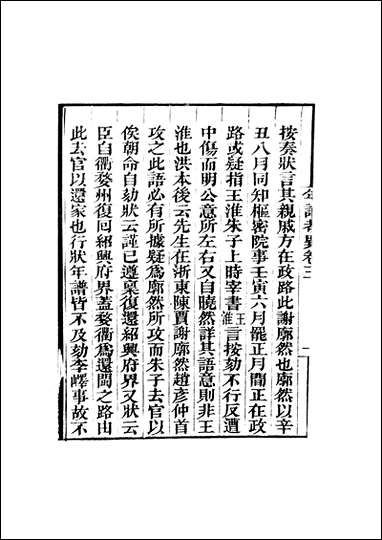 年譜考異卷三
一
按奏狀言其親戚方在政路此謝廓然也廓然以辛
丑八月同知樞密院事壬寅六月罷正月間正在政
路或疑指王淮朱子上時宰書王淮言按劾不行反遭
中傷而明公意所左右又自曉然詳其語意則非王
淮也洪本後云先生在浙東陳賈謝廓然趙彥仲首
攻之此語必有所據疑爲廓然所攻而朱子去官以
俟朝命自劾狀云謹已遵稟復還紹興府界又狀云
臣自衢婺州復回紹興府界蓋婺衢爲還閩之路由
此去官以還家也行狀年譜皆不及劾李嶧事故不